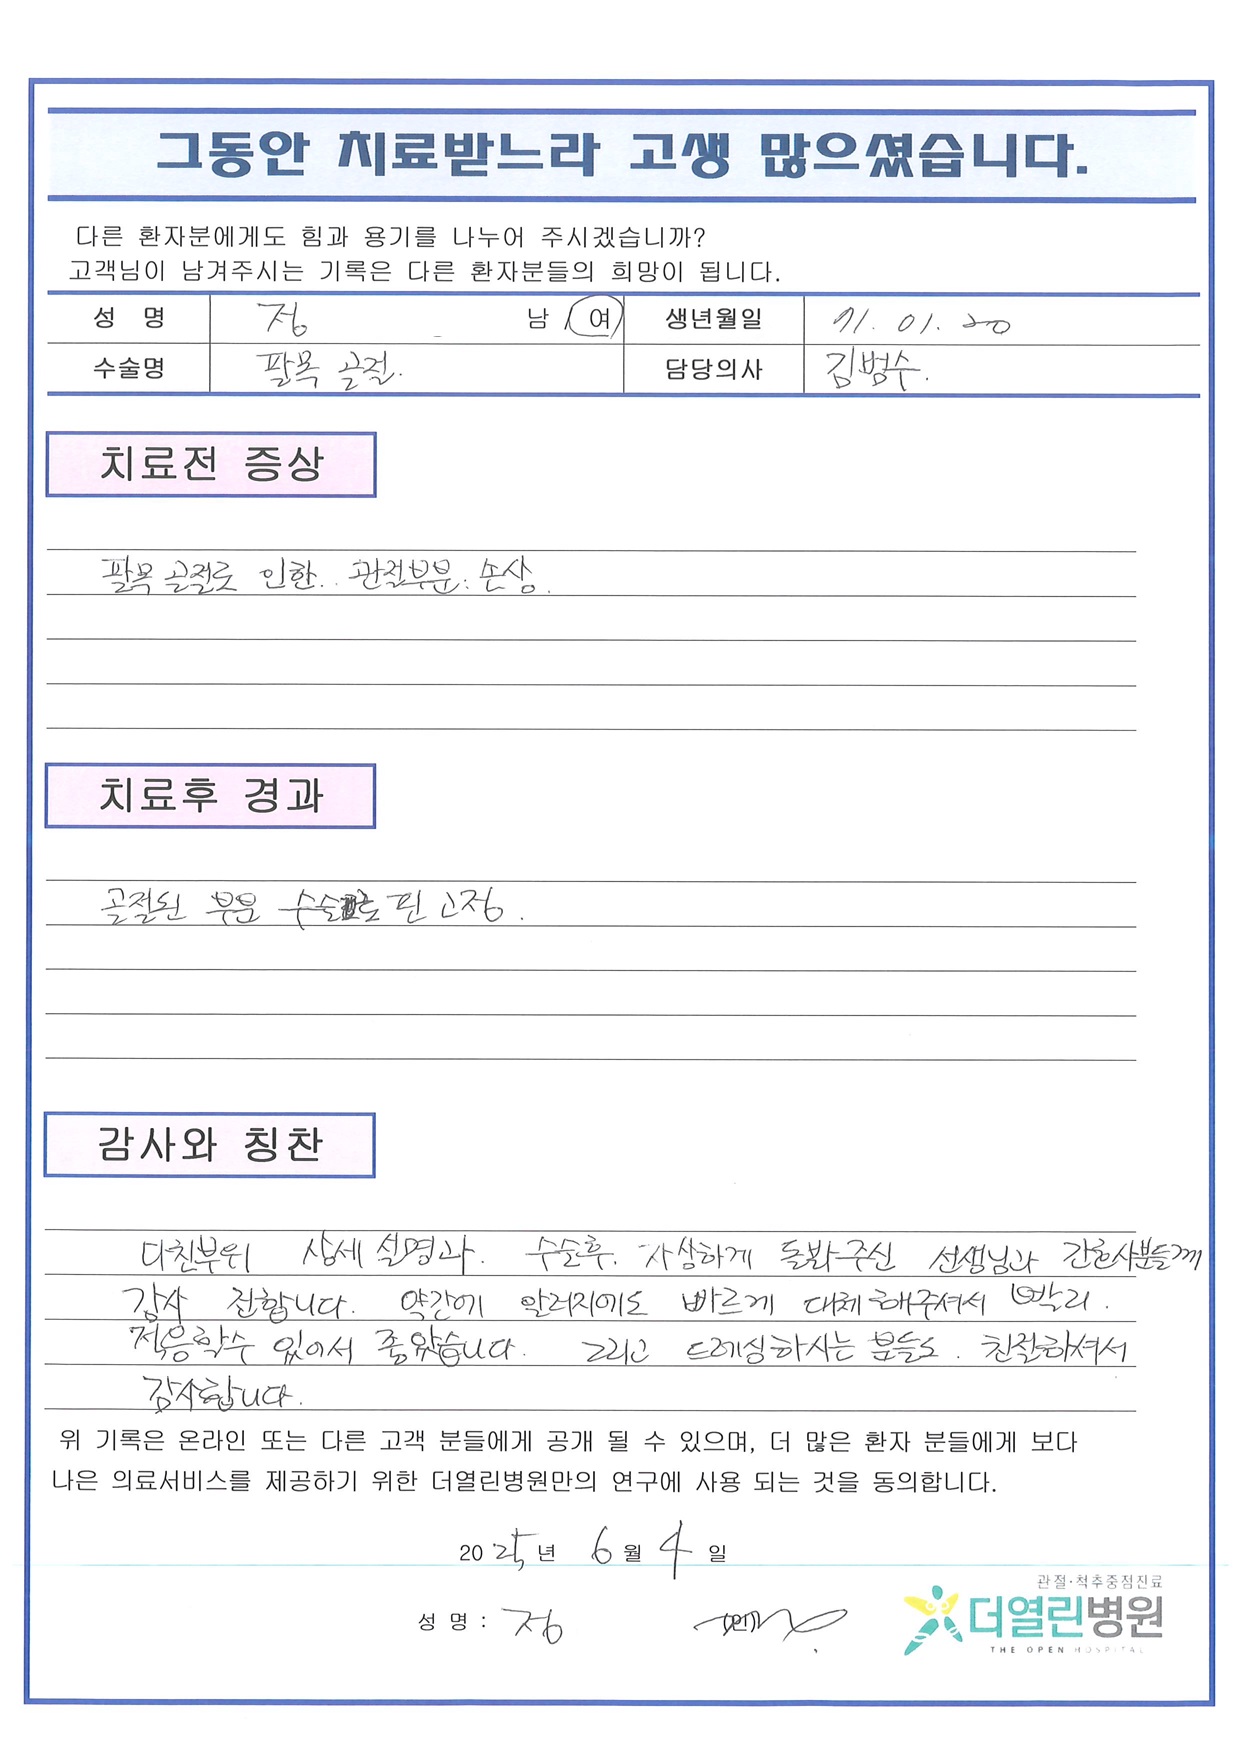 그동안 치료받느라 고생 많으셨습니다.
다른 환자분에게도 힘과 용기를 나누어 주시겠습니까?
고객님이 남겨주시는 기록은 다른 환자분들의 희망이 됩니다.
성 명 정 남 여 생년월일 71. 01. 20
수술명 팔목 골절. 담당의사 김범수.
치료전 증상
팔목 골절로 인한.. 관절부분. 손상.
치료후 경과
골절된 부분 수술로 핀 고정.
감사와 칭찬
다친부위 상세 설명과. 수술후. 자상하게 돌봐주신 선생님과 간호사분들께
감사 전합니다. 약간에 알러지에도 빠르게 대체해주셔서 빨리.
적응할수 있어서 좋았습니다. 그리고 드레싱하시는 분들도. 친절하셔서
감사합니다.
위 기록은 온라인 또는 다른 고객 분들에게 공개 될 수 있으며, 더 많은 환자 분들에게 보다
나은 의료서비스를 제공하기 위한 더열린병원만의 연구에 사용 되는 것을 동의합니다.
2025년 6월 4일
관절·척추중점진료
성 명 : 정 (인) 더열린병원
THE OPEN HOSPITAL